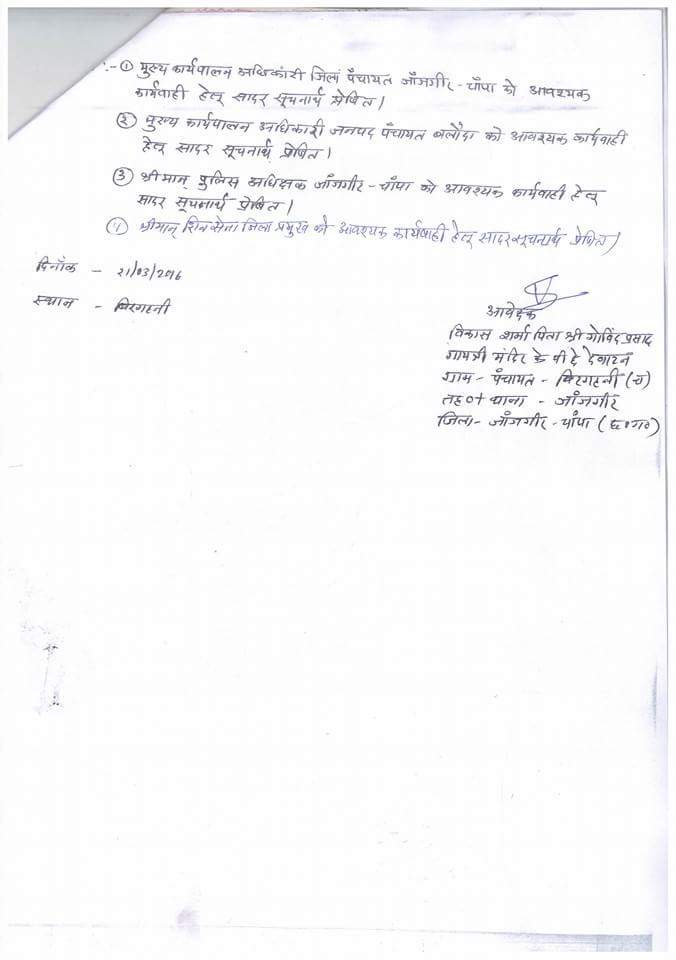 :- ① मुख्य कार्यपालन अधिकारी जिला पंचायत जाँजगीर - चाँपा को आवश्यक
कार्यवाही हेतू सादर सूचनार्थ प्रेषित।
② मुख्य कार्यपालन अधिकारी जनपद पंचायत बलौदा को आवश्यक कार्यवाही
हेतू सादर सूचनार्थ प्रेषित।
③ श्रीमान् पुलिस अधिक्षक जाँजगीर - चाँपा को आवश्यक कार्यवाही हेतू
सादर सूचनार्थ प्रेषित।
④ श्रीमान् शिवसेना जिला प्रमुख को आवश्यक कार्यवाही हेतू सादर सूचनार्थ प्रेषित।
दिनाँक - 21/03/2016
स्थान - सिरगहनी
आवेदक
विकास शर्मा पिता श्री गोविंद प्रसाद
गायत्री मंदिर के पीछे
ग्राम - पंचायत - सिरगहनी (च)
तह० + थाना - जाँजगीर
जिला - जाँजगीर - चाँपा (छ०ग०)